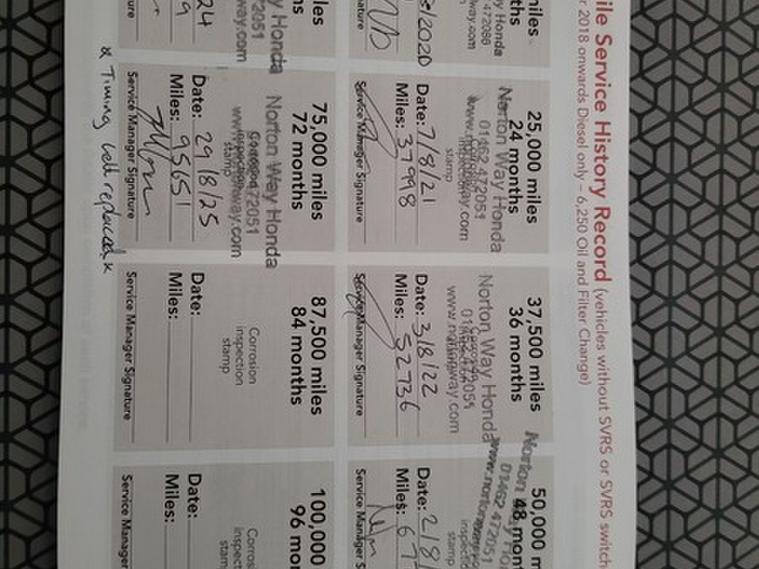 ile Service History Record (vehicles without SVRS or SVRS switch
r 2018 onwards Diesel only – 6,250 Oil and Filter Change)
miles
ths
y Honda
472086
way.com
/2020
nature
25,000 miles
24 months
Norton Way Honda
01462 472051
www.nortonway.com
stamp
Date: 7/8/21
Miles: 37998
Service Manager Signature
37,500 miles
36 months
Norton Way Honda
www.nortonway.com
Date: 3/8/22
Miles: 52736
Service Manager Signature
50,000 m
48 mont
Norton
01462 472051
www.nortonway
inspect
stamp
Date: 2/8/
Miles: 67
Service Manager S
les
ns
y Honda
2051
way.com
24
9
ature
75,000 miles
72 months
Norton Way Honda
Corrosion
472051
inspection
www.nortonway.com
stamp
Date: 29/8/25
Miles: 95651
Service Manager Signature
87,500 miles
84 months
Corrosion
inspection
stamp
Date:
Miles:
Service Manager Signature
100,000
96 mo
Corros
inspect
stam
Date:
Miles:
Service Manager
* Timing belt replaced *